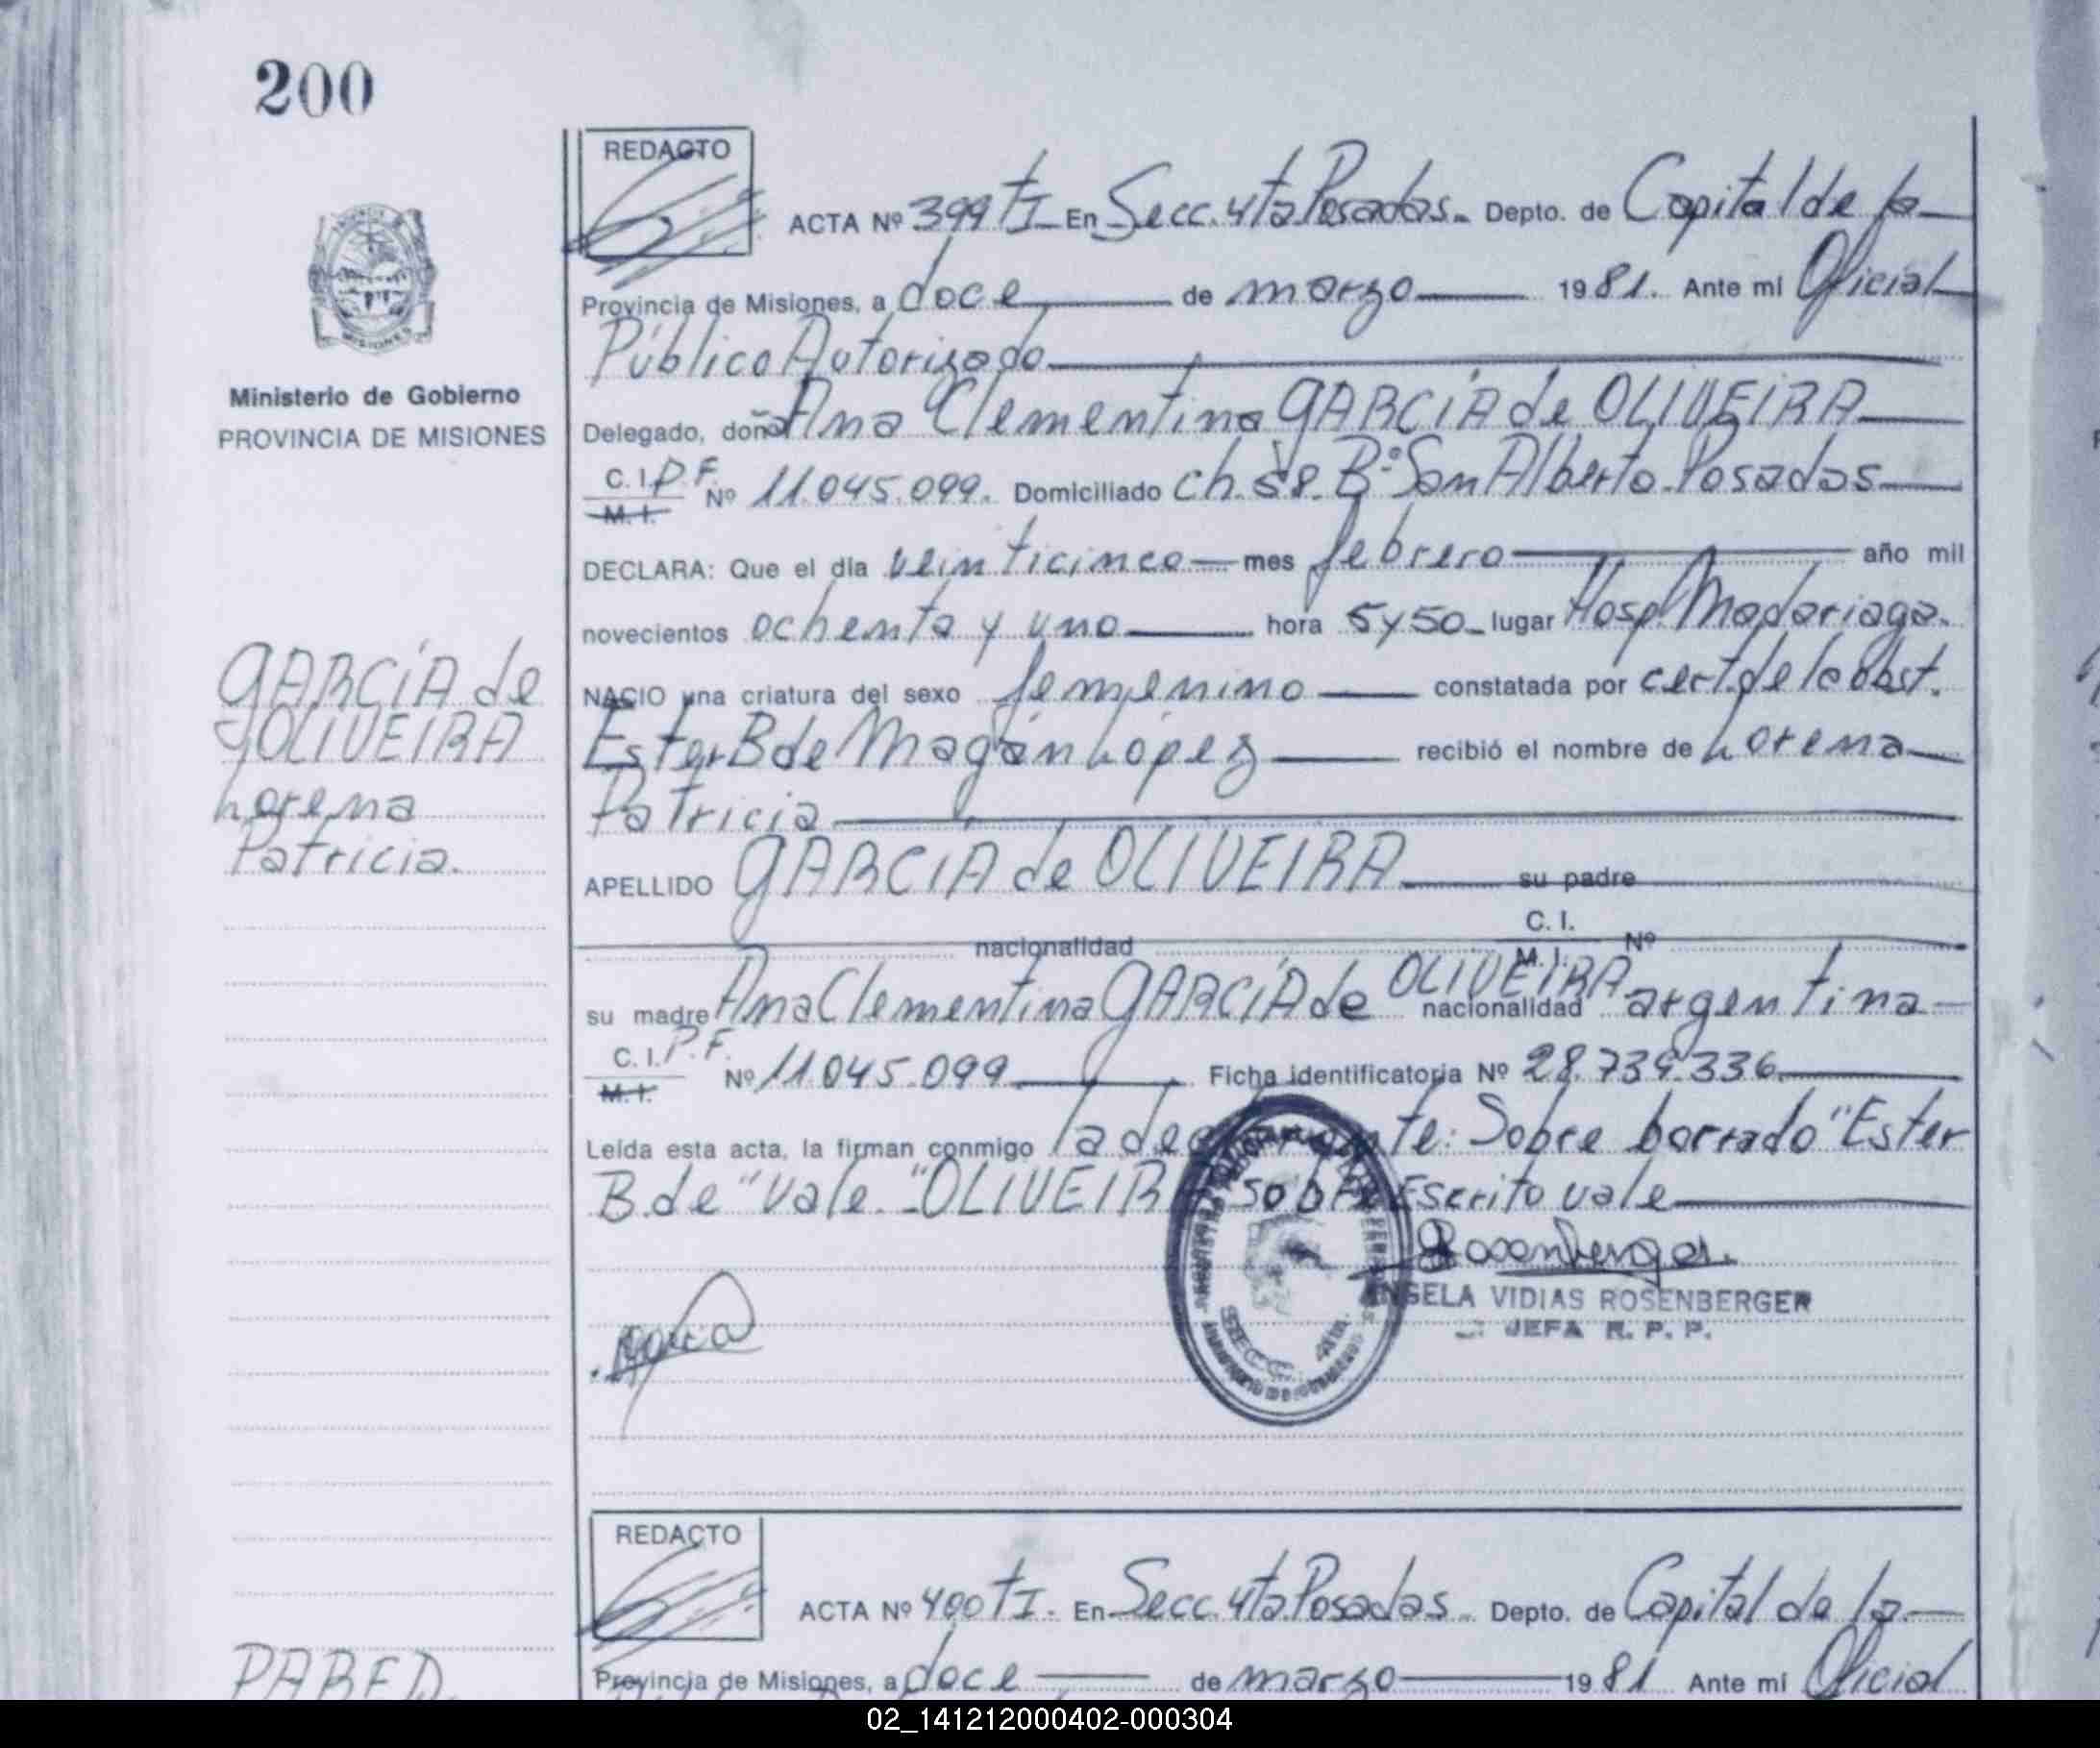 200
REDACTO
ACTA Nº 399 tI En Secc. 4ta Posadas. Depto. de Capital de la
Provincia de Misiones, a doce de marzo 1981. Ante mi Oficial
Público Autorizado
Ministerio de Gobierno
PROVINCIA DE MISIONES
Delegado, doña Ana Clementina GARCÍA de OLIVEIRA
C. I. P. F. Nº 11.045.099. Domiciliado Ch. 58. Bº San Alberto. Posadas
M. I.
DECLARA: Que el día veinticinco mes febrero año mil
novecientos ochenta y uno hora 5 y 50 lugar Hosp. Madariaga.
GARCÍA de
OLIVEIRA
Lorena
Patricia.
NACIO una criatura del sexo femenino constatada por cert. de la obst.
Ester B de Magán López recibió el nombre de Lorena
Patricia
APELLIDO GARCÍA de OLIVEIRA su padre
nacionalidad C. I. M. I. Nº
su madre Ana Clementina GARCÍA de OLIVEIRA nacionalidad argentina
C. I. P. F. Nº 11.045.099 Ficha identificatoria Nº 28.739.336.
M. I.
Leída esta acta, la firman conmigo la declarante: Sobre borrado "Ester
B. de" vale. "OLIVEIRA sobre Escrito vale
Rosenberger
ANGELA VIDIAS ROSENBERGER
JEFA R. P. P.
SECC. 4ta.
REDACTO
ACTA Nº 400 tI. En Secc. 4ta Posadas. Depto. de Capital de la
Provincia de Misiones, a doce de marzo 1981 Ante mi Oficial
02_141212000402-000304